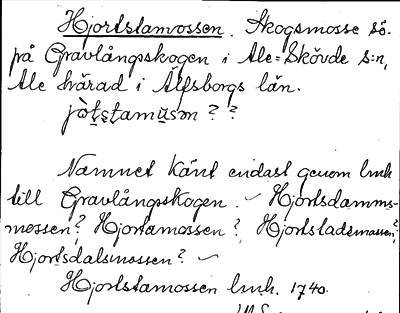 Hjortstamossen. Skogsmosse sö.
på Gravlångskogen i Ale-Skövde s:n,
Ale härad i Älfsborgs län.
Namnet känt endast genom lmk
till Gravlångskogen. – Hjortsdamms-
mossen? Hjortamossen? Hjortstadsmossen?
Hjortsdalsmossen? –
Hjortstamossen lmk. 1740.